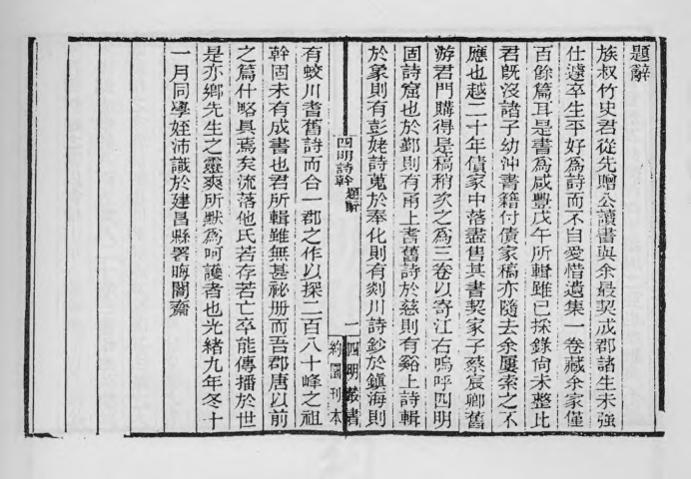 題辭
族叔竹史君從先贈公讀書與余最契成郡諸生未強
仕遽卒生平好為詩而不自愛惜遺集一卷藏余家僅
百餘篇耳是書為咸豐戊午所輯雖已採錄尙未整比
君旣沒諸子幼沖書籍付債家稿亦隨去余屢索之不
應也越二十年債家中落盡售其書契家子蔡宸卿舊
游君門購得是稿稍次之為三卷以寄江右嗚呼四明
固詩窟也於鄞則有甬上耆舊詩於慈則有谿上詩輯
於象則有彭姥詩蒐於奉化則有剡川詩鈔於鎭海則
四明詩幹 題辭 一 四明叢書
約園刊本
有蛟川耆舊詩而合一郡之作以探二百八十峰之祖
幹固未有成書也君所輯雖無甚祕册而吾郡唐以前
之篇什略具焉矣流落他氏若存若亡卒能傳播於世
是亦鄉先生之靈爽所默為呵護者也光緒九年冬十
一月同學姪沛識於建昌縣署晦闇齋